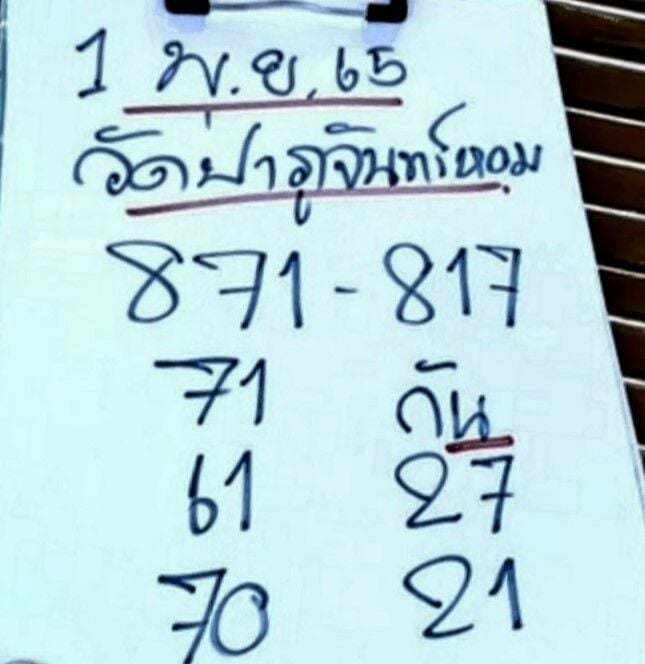 1 พ.ย. 65
วัดป่าภูจันทร์หอม
871 - 817
71 กัน
61 27
70 21